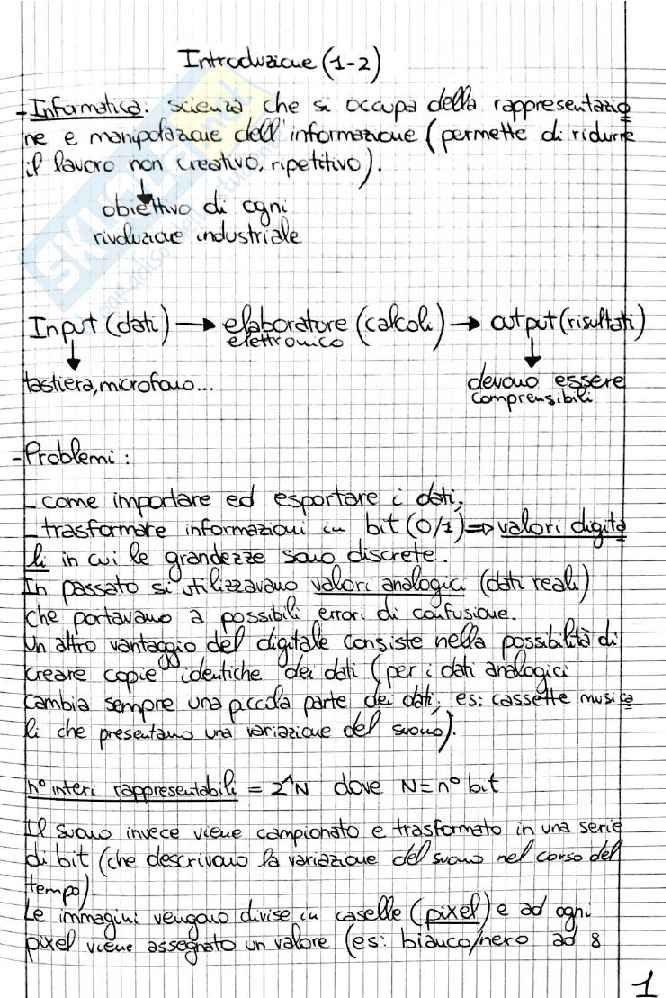 Introduzione (1-2)
- Informatica: scienza che si occupa della rappresentazio
ne e manipolazione dell'informazione (permette di ridurre
il lavoro non creativo, ripetitivo).
obiettivo di ogni
rivoluzione industriale
Input (dati) → elaboratore (calcoli) → output (risultati)
elettronico
tastiera, microfono... devono essere
comprensibili
- Problemi:
- come importare ed esportare i dati;
- trasformare informazioni in bit (0/1) => valori digita
li in cui le grandezze sono discrete.
In passato si utilizzavano valori analogici (dati reali)
che portavano a possibili errori di confusione.
Un altro vantaggio del digitale consiste nella possibilità di
creare copie identiche dei dati (per i dati analogici
cambia sempre una piccola parte dei dati, es: cassette musica
li che presentano una variazione del suono).
n° interi rappresentabili = 2^N dove N = n° bit
Il suono invece viene campionato e trasformato in una serie
di bit (che descrivono la variazione del suono nel corso del
tempo)
Le immagini vengono divise in caselle (pixel) e ad ogni
pixel viene assegnato un valore (es: bianco/nero ad 8
1
SKUOLA.NET